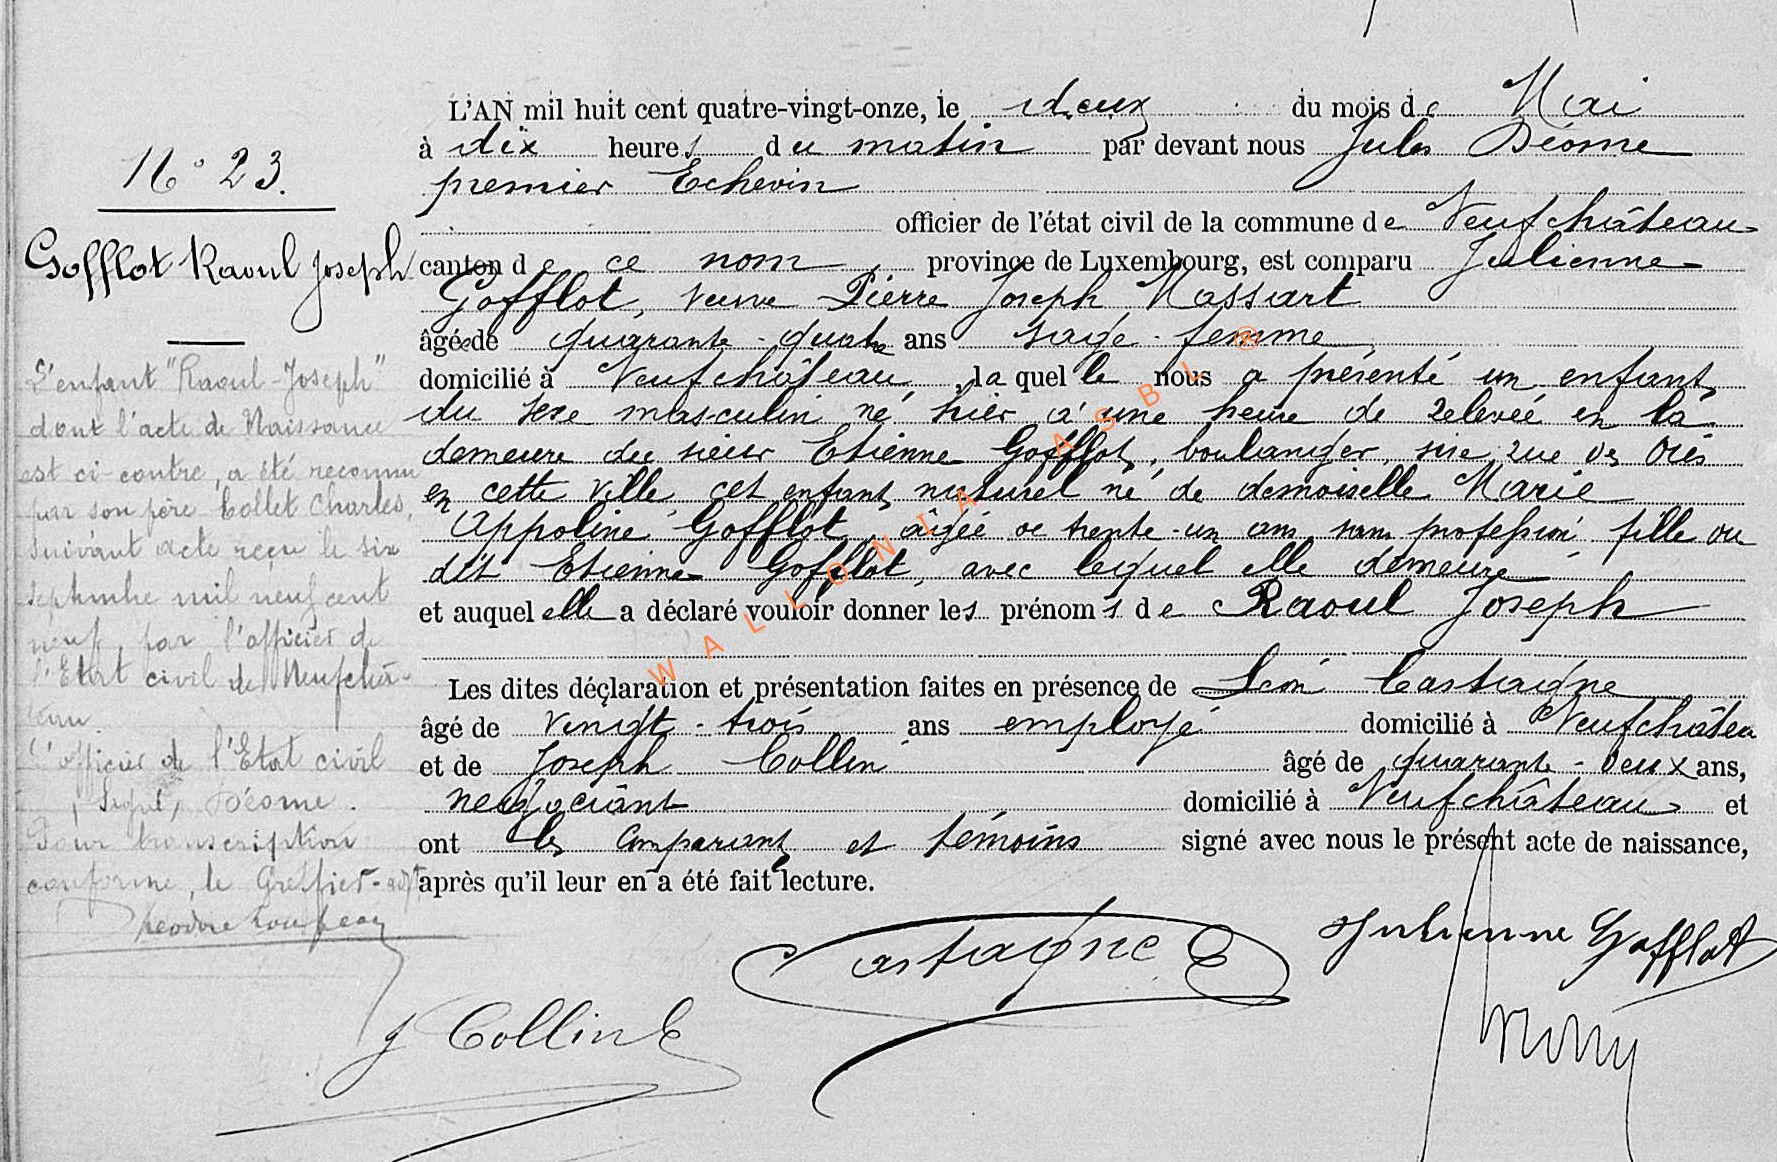 N° 23.
Gofflot Raoul Joseph
L'enfant "Raoul-Joseph"
dont l'acte de Naissance
est ci-contre, a été reconnu
par son père Collet Charles,
suivant acte reçu le six
septembre mil neuf cent
neuf, par l'officier de
l'Etat civil de Neufchâ-
teau
L'officier de l'Etat civil
, signé, Déome.
Pour transcription
conforme, le Greffier-adjt
L'AN mil huit cent quatre-vingt-onze, le deux du mois de Mai
à dix heures du matin par devant nous Jules Déome
premier Echevin
officier de l'état civil de la commune de Neufchâteau
canton de ce nom province de Luxembourg, est comparu Julienne
Gofflot, veuve Pierre Joseph Massart
âgée de quarante-quatre ans sage-femme
domicilié à Neufchâteau, laquelle nous a présenté un enfant
du sexe masculin né hier à une heure de relevée en la
demeure du sieur Etienne Gofflot, boulanger, sise rue des
en cette ville, cet enfant naturel né de demoiselle Marie
Appoline Gofflot, âgée de trente-un ans sans profession fille du
dit Etienne Gofflot, avec lequel elle demeure
et auquel elle a déclaré vouloir donner les prénoms de Raoul Joseph
Les dites déclaration et présentation faites en présence de Léon Castaigne
âgé de vingt-trois ans employé domicilié à Neufchâteau
et de Joseph Collin âgé de quarante-deux ans,
négociant domicilié à Neufchâteau et
ont les comparant et témoins signé avec nous le présent acte de naissance,
après qu'il leur en a été fait lecture.
Castagne
Julienne Gofflot
J Collin
WALLONIA ASBL ®